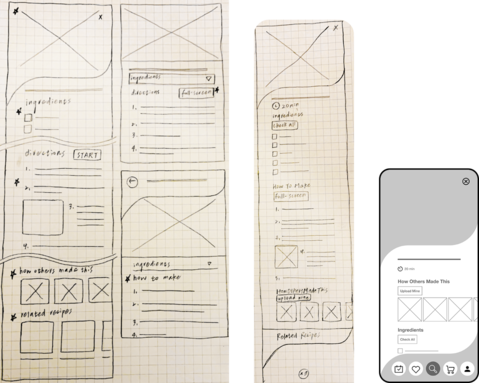 x
ingredients
directions START
1.
2.
3.
4.
how others made this
related recipes
ingredients
directions full-screen
1.
2.
3.
4.
ingredients
how to make
1.
2.
3.
4.
x
20 min
ingredients
check all
How to Make
full-screen
1.
2.
3.
4.
5.
upload mine
Related Recipes
20 min
How Others Made This
Upload Mine
Ingredients
Check All